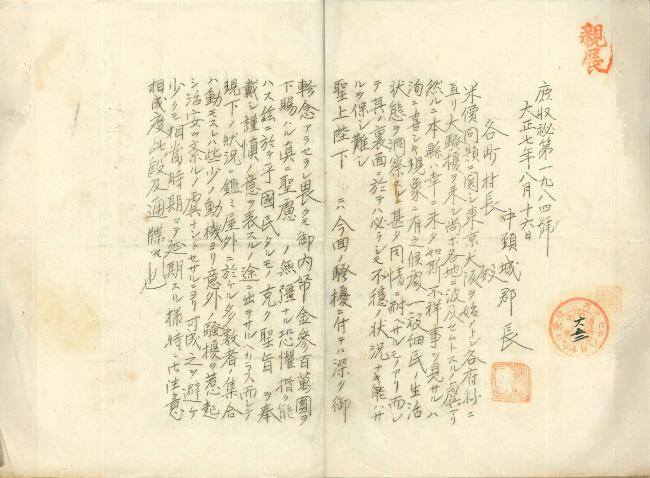 親展
庶収秘第一九八四號
大正七年八月十六日
中頸城郡長
各町村長 殿
米價問題ニ関シ東京大阪ヲ始メトシ各府縣ニ
亘リ大騒擾ヲ来シ尚ホ各地ニ波及セムトスルノ虞アリ
然ルニ本縣ハ幸ニ未タ如斯不祥事ヲ見サルハ
洵ニ喜シキ現象ニ有之候處一般細民生活
状態ヲ洞察シ甚タ同情ニ耐ヘサルモノアリ而シ
テ其ノ裏面ニ於テハ必ラシモ不穏ノ状況ナキ能ハサ
ルヲ保シ難シ
聖上陛下ニハ今回ノ騒擾ニ付テハ深ク御
軫念アラセラレ畏クモ御内帑金參百萬圓ヲ
下賜ハル真ニ聖慮ノ無疆ナル恐懼措ク能
ハス茲ニ於テ乎國民タルモノ克ク聖旨ヲ奉
戴シ謹慎ノ意ヲ表スルノ途ニ出テサルヘカラス而シテ
現下ノ状況ニ鑑ミ屋外ニ於ケル多数者ノ集合
ハ動モスレハ些少ノ動機ヨリ意外ノ騒擾ヲ惹起
シ治安ヲ紊ルノ虞ナシトセサルニヨリ可成之ヲ避ケ
少クモ相當時期マテ延期スル様特ニ御注意
相成度此段及通牒候也